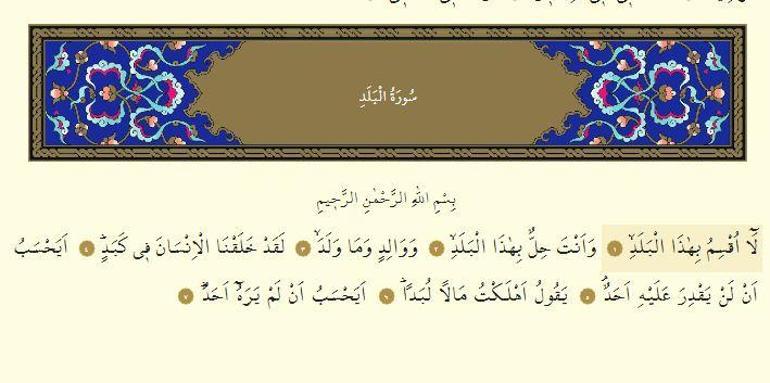 سُورَةُ الْبَلَدِ
بِسْمِ اللّٰهِ الرَّحْمٰنِ الرَّحٖيمِ
لَٓا اُقْسِمُ بِهٰذَا الْبَلَدِۙ ١ وَاَنْتَ حِلٌّ بِهٰذَا الْبَلَدِۙ ٢ وَوَالِدٍ وَمَا وَلَدَۙ ٣ لَقَدْ خَلَقْنَا الْاِنْسَانَ فٖي كَبَدٍؕ ٤ اَيَحْسَبُ
اَنْ لَنْ يَقْدِرَ عَلَيْهِ اَحَدٌۢ ٥ يَقُولُ اَهْلَكْتُ مَالًا لُبَدًاؕ ٦ اَيَحْسَبُ اَنْ لَمْ يَرَهُٓ اَحَدٌؕ ٧